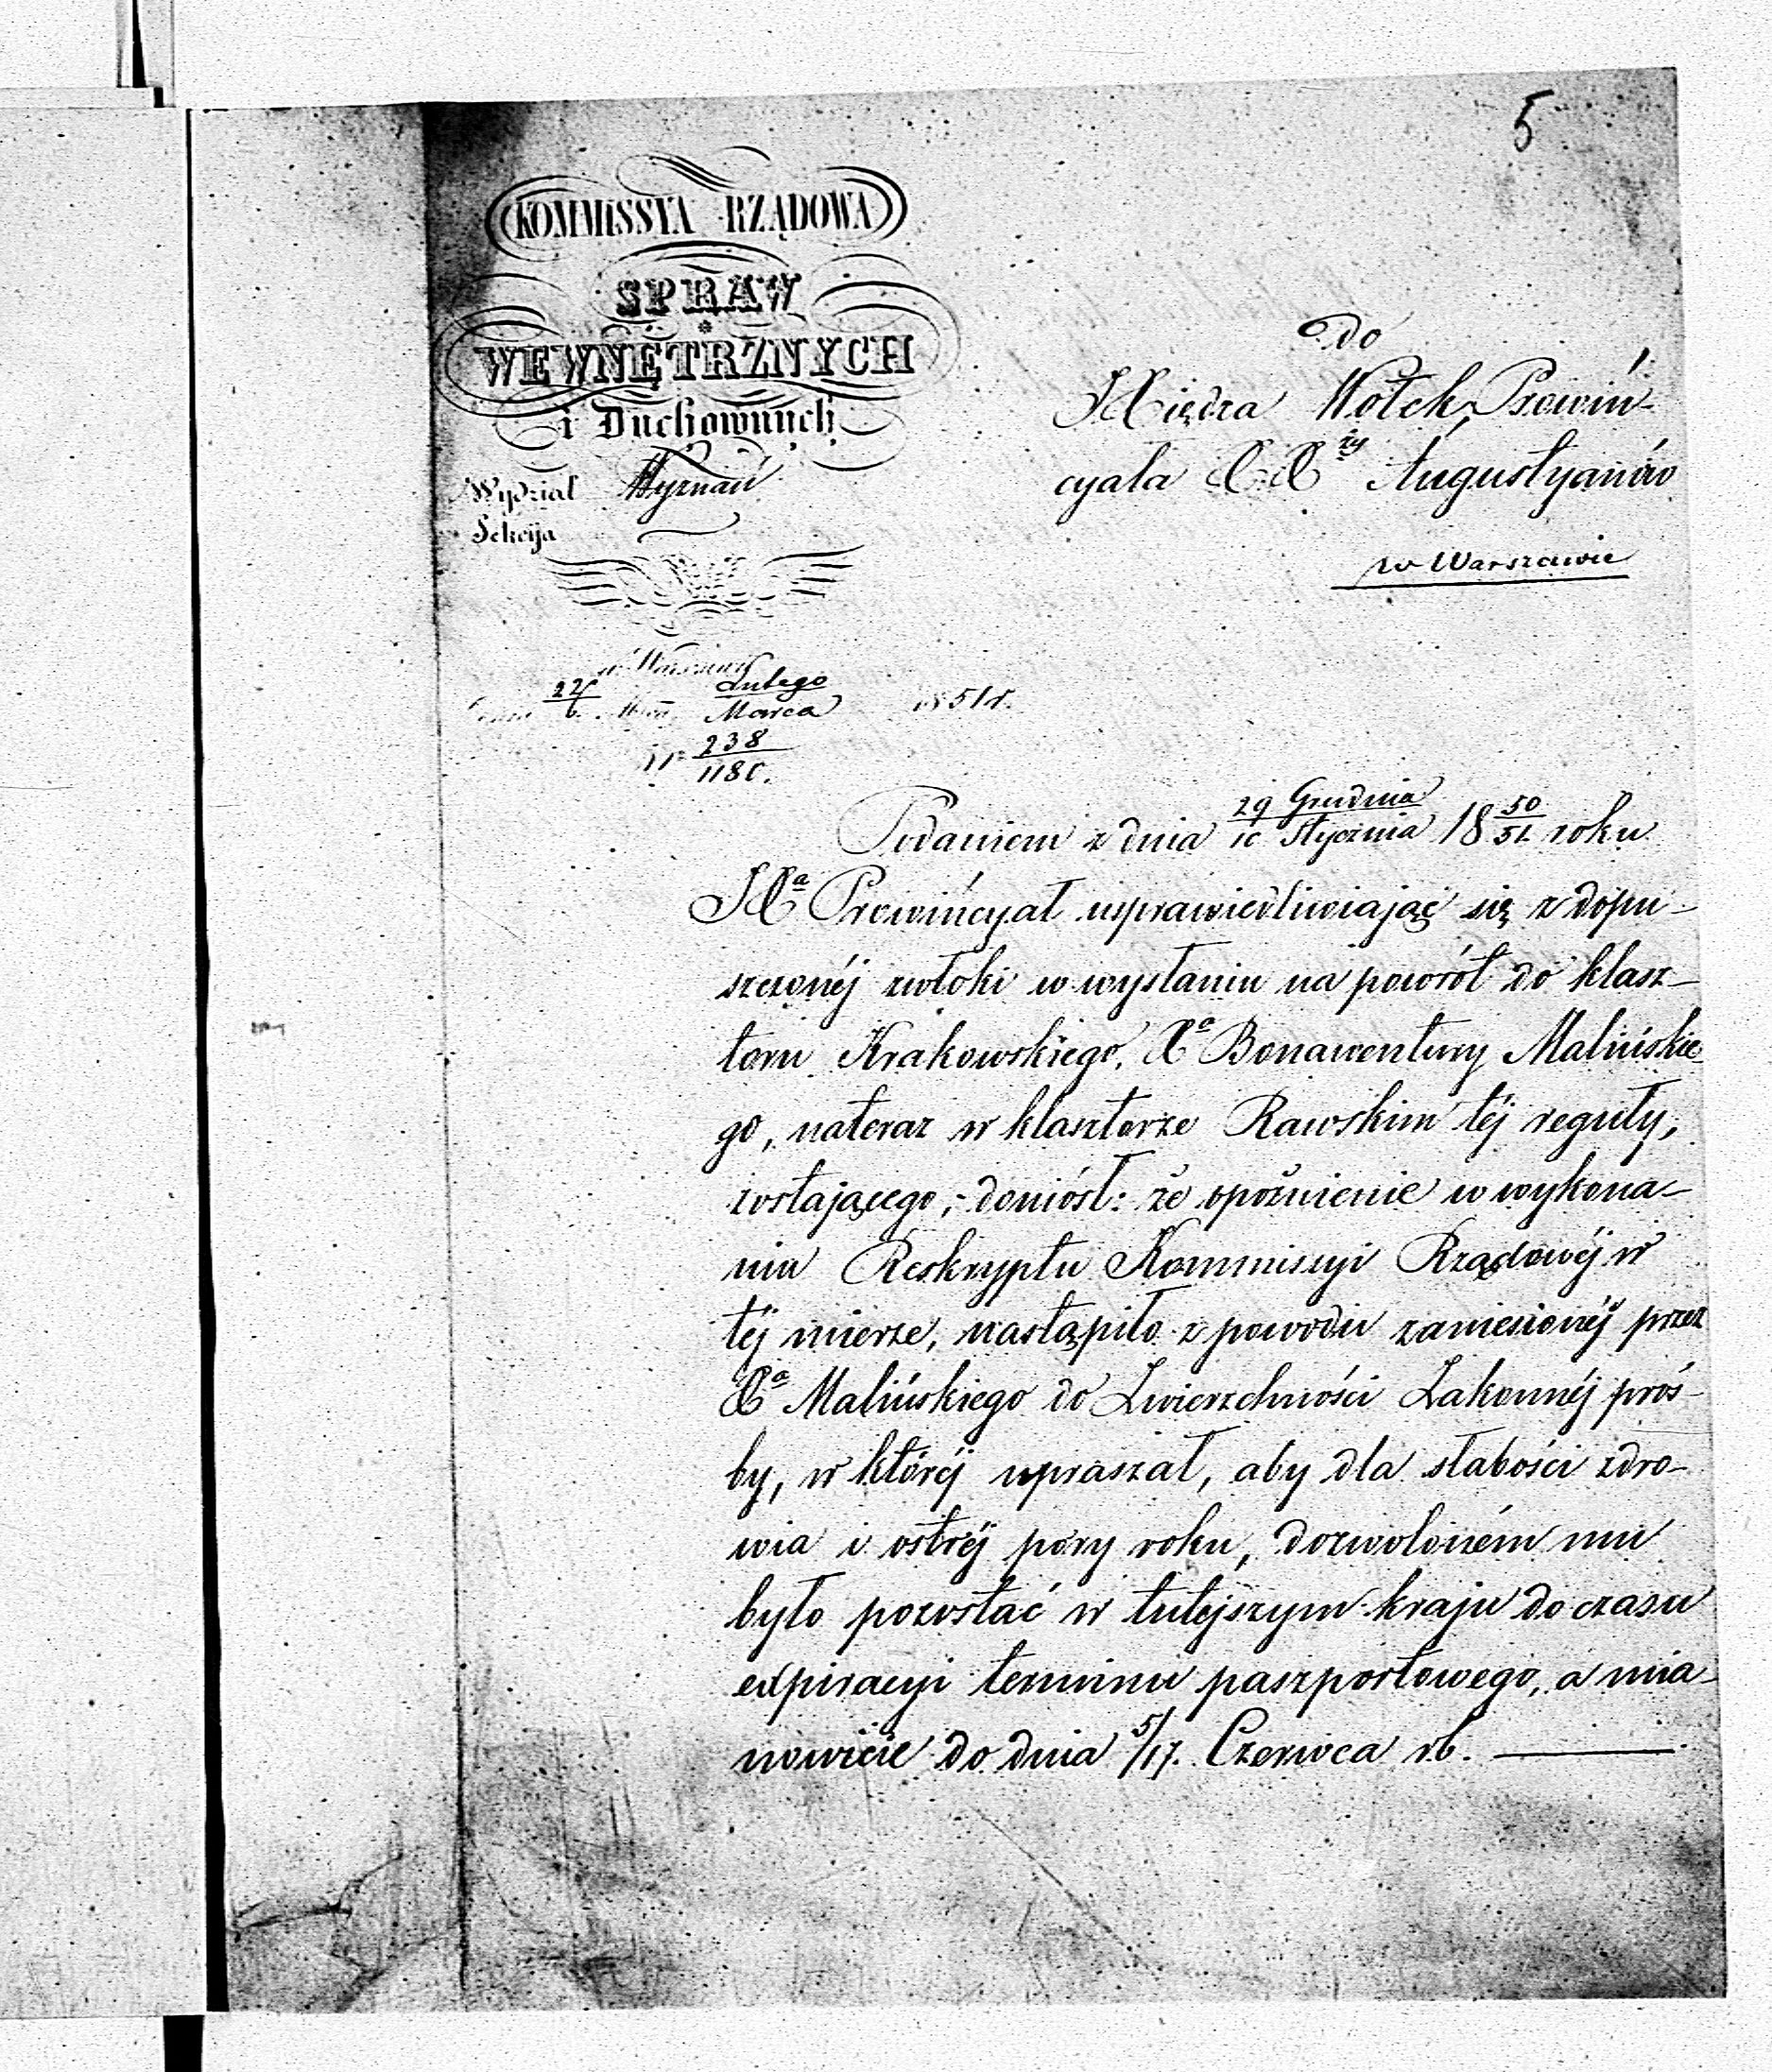 5
KOMMISSYA RZĄDOWA
SPRAW
WEWNĘTRZNYCH
i Duchownych
Wydział Wyznań
Sekcija
do
JXiędza Wołek Prowin-
cyała XX.ży Augustyanów
w Warszawie
w Warszawie
22/6 Lutego/Marca 1851 r.
Nr 238/1180.
Podaniem z dnia 29 Grudnia/10 Stycznia 1850/51 roku
JXa Prowińcyał usprawiedliwiając się z dopu-
szczonéj zwłoki w wysłaniu na powrót do klasz-
toru Krakowskiego, Xa Bonawentury Malińskie-
go, nateraz w klasztorze Rawskim téj reguły,
zostającego, doniósł: że opóźnienie w wykona-
nia Reskryptu Kommissyi Rządowéj w
téj mierze, nastąpiło z powodu zaniesionéj przez
Xa Malińskiego do Zwierzchności Zakonnéj proś-
by, w któréj upraszał, aby dla słabości zdro-
wia i ostréj pory roku, dozwoloném mu
było pozostać w tutéjszym kraju do czasu
expiracyi terminu paszportowego, a mia-
nowicie do dnia 5/17. Czerwca rb.